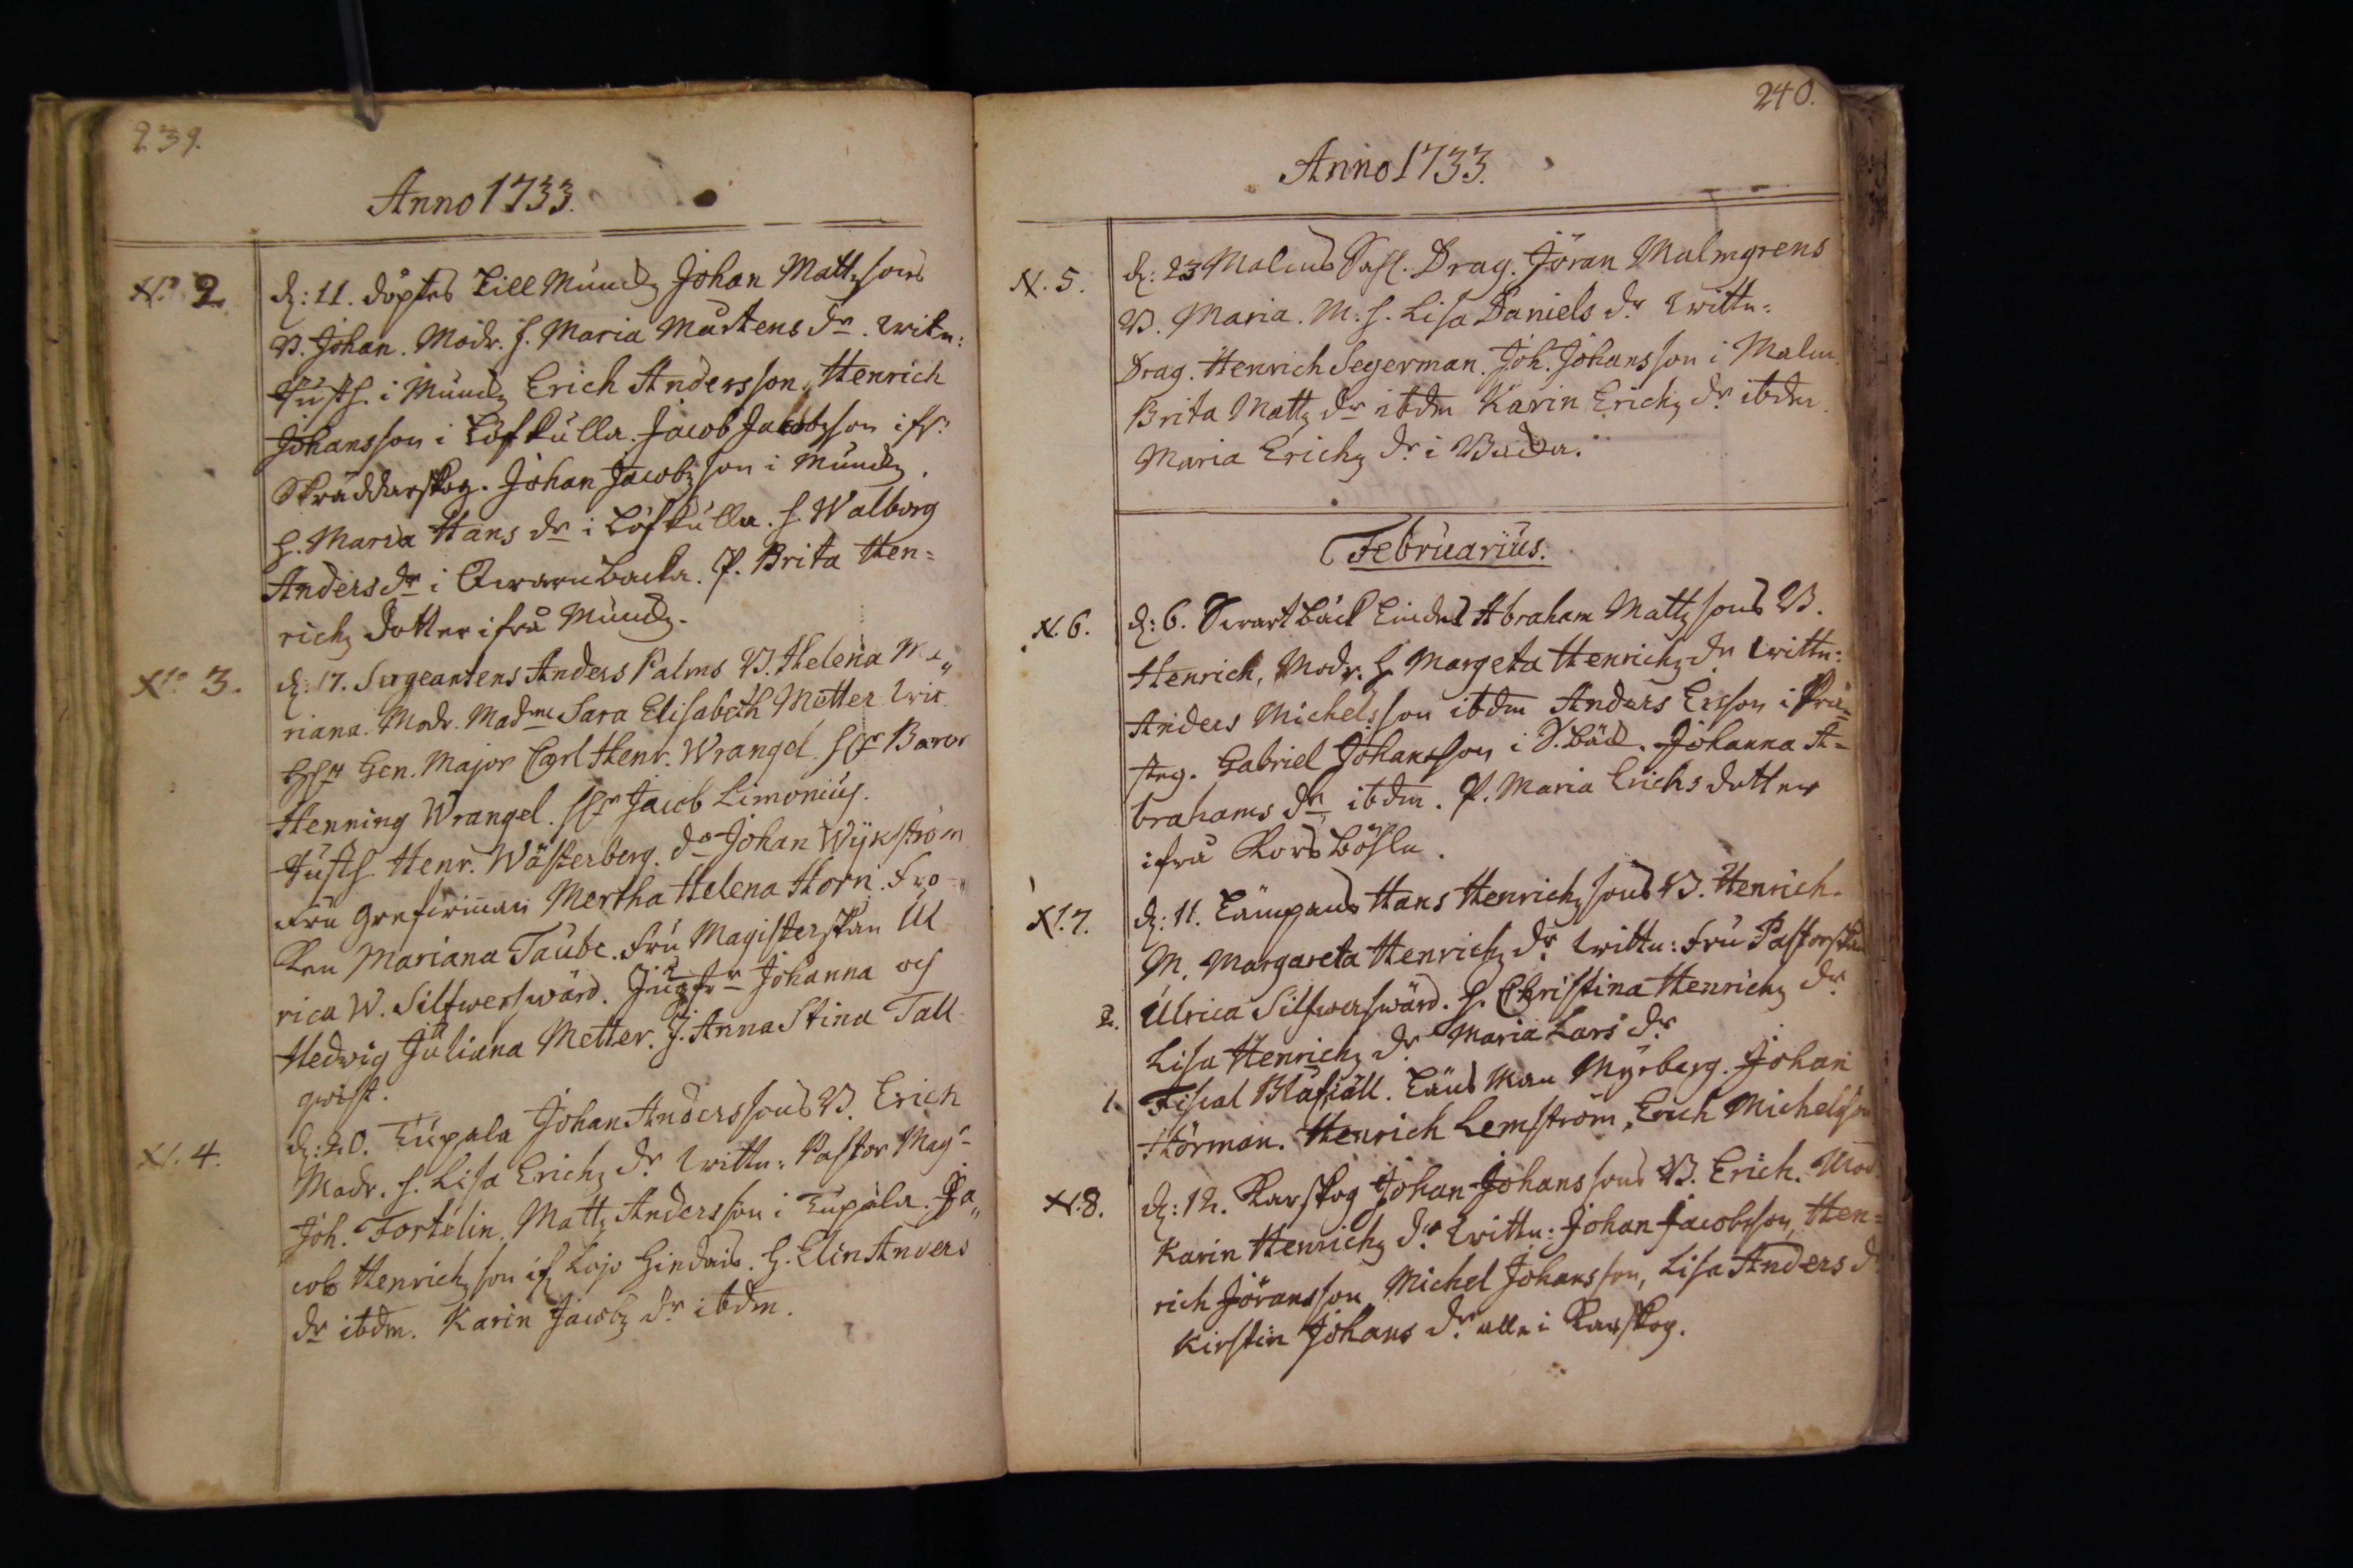 239.
Anno 1733.
N:o 2.
d: 11. döptes Lill Munckz Johan Mattzsons
B. Johan. Modr. H. Maria Mårtens dr. Witn:
Husth. i Munckz Erich Andersson, Henrich
Johansson i Löfkulla. Jacob Jacobzson ifr:
Skräddarskog. Johan Jacobzson i Munckz.
H. Maria Hans dr i Löfkulla. H. Walborg
Anders dr i Qwarnbacka. P. Brita Hen=
richz dotter ifrå Munckz.
N:o 3.
d: 17. Sergeantens Anders Palms B. Helena Ma„
riana. Modr. Madme Sara Elisabeth Metter. Wit
Gen. Major Carl Henr. Wrangel. Baron
Henning Wrangel. Jacob Limonius.
Husth. Henr. Wästerberg. do Johan Wijkström
Fru Grefwinnan Mertha Helena Horn. Frö„
ken Mariana Taube. Fru Magisterskan Ul
rica W. Silfwerswärd. Jungfr Johanna och
Hedwig Juliana Metter. J. Anna Stina Tall
qwist.
N. 4.
d: 20. Lupala Johan Anderssons B. Erich
Modr. H. Lisa Erichz dr Wittn: Pastor Mag:r
Joh. Fortelin. Mattz Andersson i Lupala. Ja„
cob Henrichzson if. Lojo Hindais. H. Elin Anders
dr ibdm. Karin Jacobz dr ibdm.
240.
Anno 1733.
N. 5.
d: 23 Malms Drag. Jöran Malmgrens
B. Maria. M: H. Lisa Daniels dr Wittn:
Drag. Henrich Segerman. Joh. Johansson i Malm
Brita Mattz dr ibdm Karin Erichz dr ibdm.
Maria Erichz dr i Backa.
Februarius.
N. 6.
d: 6. Swartbäck Abraham Mattzsons B.
Henrich, Modr. H. Margeta Henrichz dr Wittn:
Anders Michelsson ibdm Anders Ersson i Prä=
steg. Gabriel Johansson i S. bäck. Johanna A=
brahams dr ibdm. P. Maria Erichs dotter
ifrå Korsböhle.
N. 7.
d: 11. Lämpans Hans Henrichzsons B. Henrich.
M. Margareta Henrichz dr Wittn: Fru Pastorskan
2.
Ulrica Silfwerswärd. H. Christina Henrichz dr
Lisa Henrichz dr Maria Lars dr
1.
Fiscal Blåfiäll. Länsman Myrberg. Johan
Hörman. Henrich Lemström, Erich Michelsson
N. 8.
d: 12. Karskog Johan Johanssons B. Erich. Mod.
Karin Henrichz dr Wittn: Johan Jacobsson, Hen=
rich Jöransson, Michel Johansson, Lisa Anders d
Kirstin Johans dr alle i Karskog.